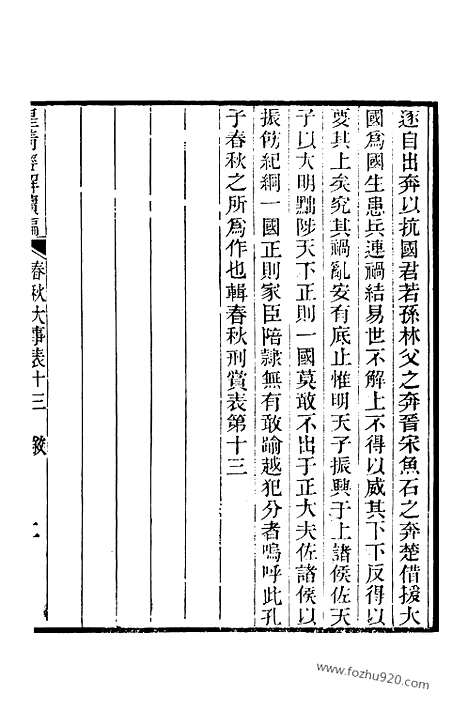 逐自出奔以抗國君若孫林父之奔晉宋魚石之奔楚借援大
國爲國生患兵連禍結易世不解上不得以威其下下反得以
要其上矣究其禍亂安有底止惟明天子振興于上諸侯佐天
子以大明黜陟天下正則一國莫敢不出于正大夫佐諸侯以
振飭紀綱一國正則家臣陪隷無有敢踰越犯分者嗚呼此孔
子春秋之所爲作也輯春秋刑賞表第十三
皇清經解續編
春秋大事表十三 敘 二
www.fozhu920.com